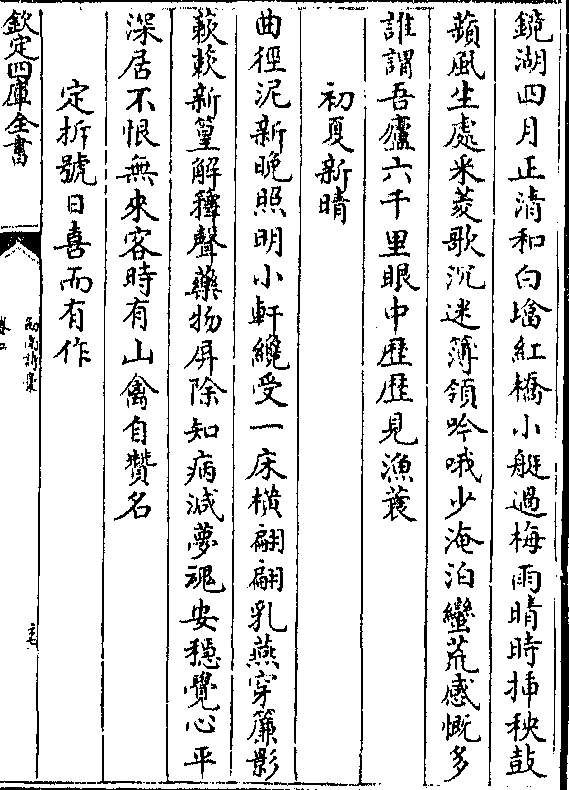 鏡湖四月正清和白塔紅橋小艇過梅雨晴時挿秧鼓
蘋風生處采菱歌沉迷簿領吟哦少淹泊蠻荒感慨多
誰謂吾廬六千里眼中歴歴見漁蓑
初夏新晴
曲徑泥新晚照明小軒纔受一床横翩翩乳燕穿簾影
蔌蔌新篁解籜聲藥物屏除知病減夢魂安穩覺心平
深居不恨無來客時有山禽自贊名
定拆號日喜而有作
欽定四庫全書
劍南詩藁